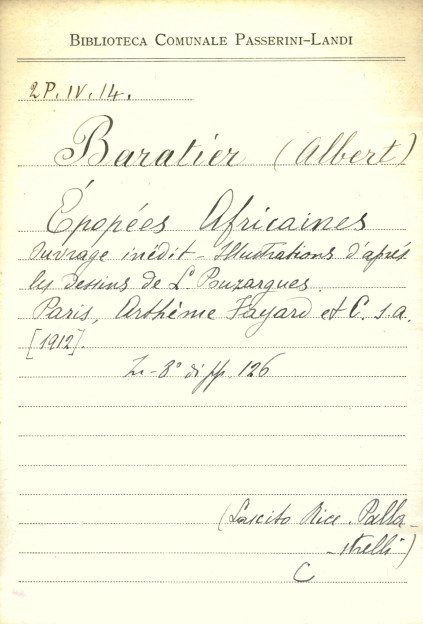 BIBLIOTECA COMUNALE PASSERINI-LANDI
2P.IV.14.
Baratier (Albert)
Épopées Africaines
Ouvrage inédit - Illustrations d'après
les dessins de L. Pouzargues.
Paris, Arthème Fayard et C. s.a.
[1912].
In-8° di pp. 126
(Lascito Ricc. Palla-
-strelli)
C